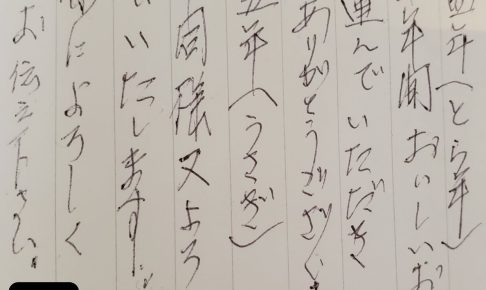 四年（とら年）
年間おいしいお
運んでいただき
ありがとうござい
五年（うさぎ）
同様又よろ
いいたします。
によろしく
お伝え下さい。